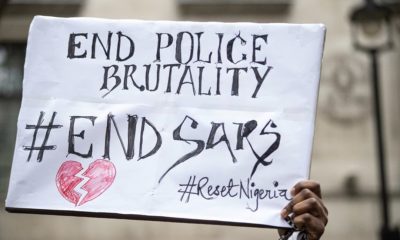 END POLICE
BRUTALITY
#END SARS
#ResetNigeria